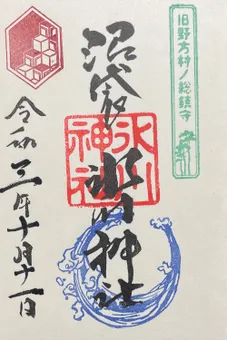 旧野方村ノ総鎮守
沼袋 氷川神社
氷川神社
令和三年十月十一日